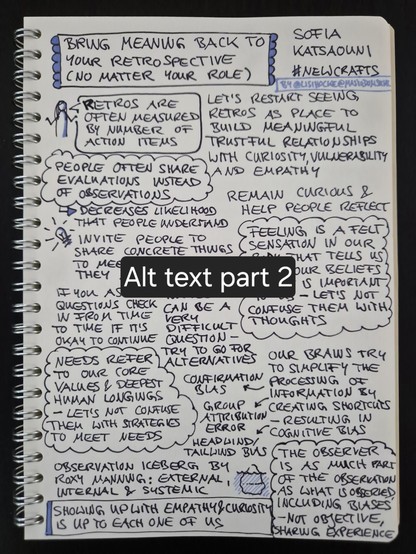 BRING MEANING BACK TO
YOUR RETROSPECTIVE
(NO MATTER YOUR ROLE)
SOFIA
KATSAOUNI
#NEWCRAFTS
RETROS ARE
OFTEN MEASURED
BY NUMBER OF
ACTION ITEMS
LET'S RESTART SEEING
RETROS AS PLACE TO
BUILD MEANINGFUL
TRUSTFUL RELATIONSHIPS
WITH CURIOSITY, VULNERABILITY
AND EMPATHY
PEOPLE OFTEN SHARE
EVALUATIONS INSTEAD
OF OBSERVATIONS
DECREASES LIKELIHOOD
THAT PEOPLE UNDERSTAND
REMAIN CURIOUS &
HELP PEOPLE REFLECT
INVITE PEOPLE TO
SHARE CONCRETE THINGS
TO
THEY
FEELING IS A FELT
SENSATION IN OUR
THAT TELLS US
OUR BELIEFS
IS IMPORTANT
TO – LET'S NOT
CONFUSE THEM WITH
THOUGHTS
Alt text part 2
IF YOU
QUESTIONS CHECK
IN FROM TIME
TO TIME IF IT'S
OKAY TO CONTINUE
CAN BE A
VERY
DIFFICULT
QUESTION –
TRY TO GO FOR
ALTERNATIVES
NEEDS REFER
TO OUR CORE
VALUES & DEEPEST
HUMAN LONGINGS
– LET'S NOT CONFUSE
THEM WITH STRATEGIES
TO MEET NEEDS
OUR BRAINS TRY
TO SIMPLIFY THE
PROCESSING OF
INFORMATION BY
CREATING SHORTCUTS
– RESULTING IN
COGNITIVE BIAS
CONFIRMATION
BIAS
GROUP
ATTRIBUTION
ERROR
HEADWIND/
TAILWIND BIAS
OBSERVATION ICEBERG BY
ROXY MANNING: EXTERNAL,
INTERNAL & SYSTEMIC
THE OBSERVER
IS AS MUCH PART
OF THE OBSERVATION
AS WHAT IS OBSERVED
INCLUDING BIASES
– NOT OBJECTIVE,
SHARING EXPERIENCE
SHOWING UP WITH EMPATHY & CURIOSITY
IS UP TO EACH ONE OF US